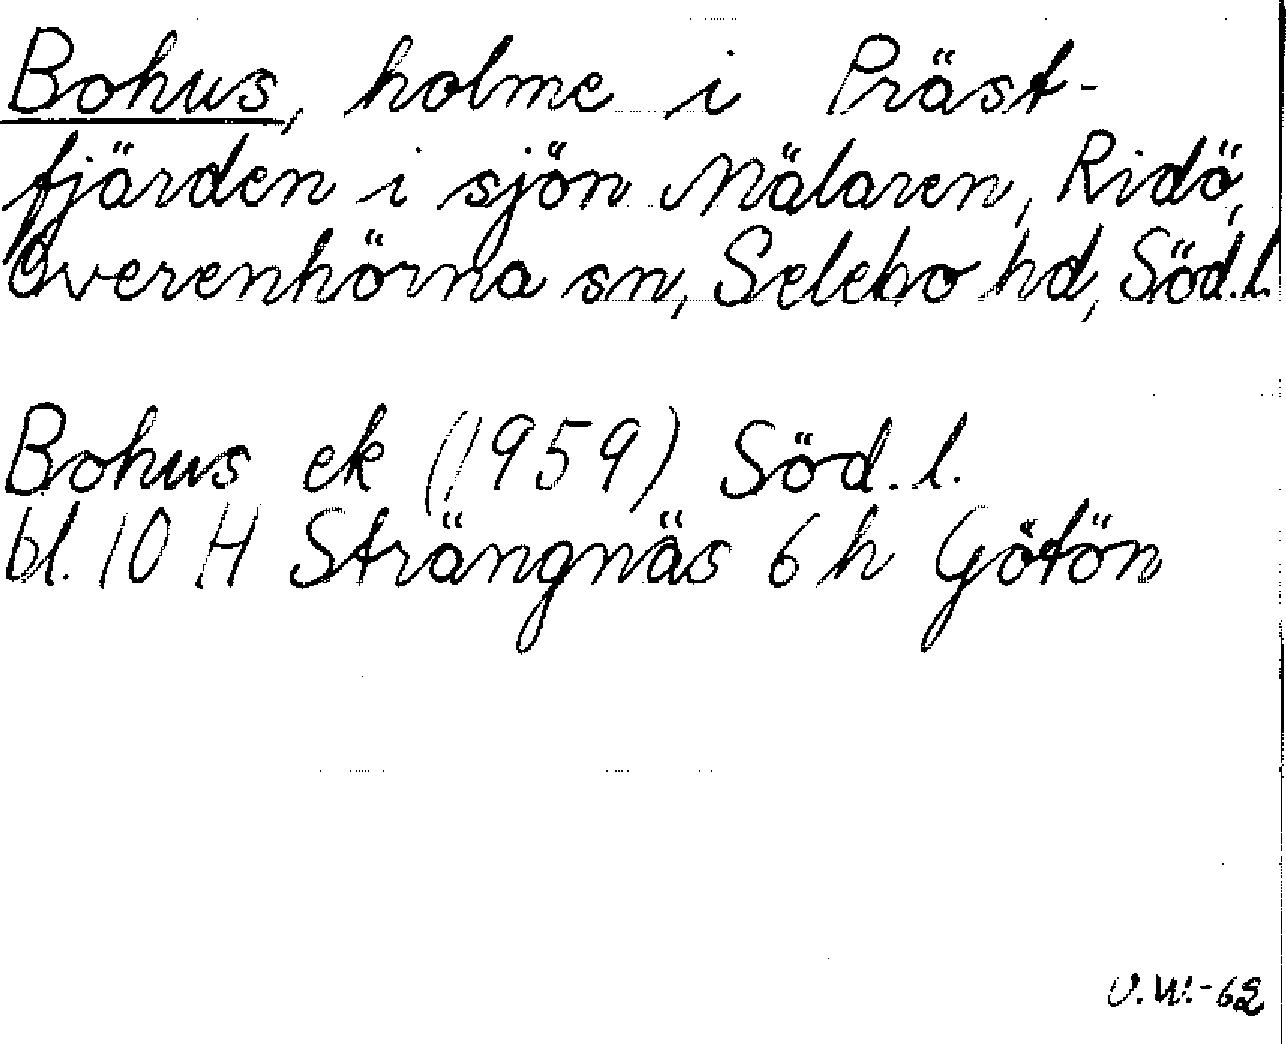 Bohus, holme i Präst-
fjärden i sjön Mälaren, Ridö,
Överenhörna sn, Selebo hd, Söd.l.
Bohus ek (1959) Söd.l.
bl. 10 H Strängnäs 6 h Götön
V.W.-62